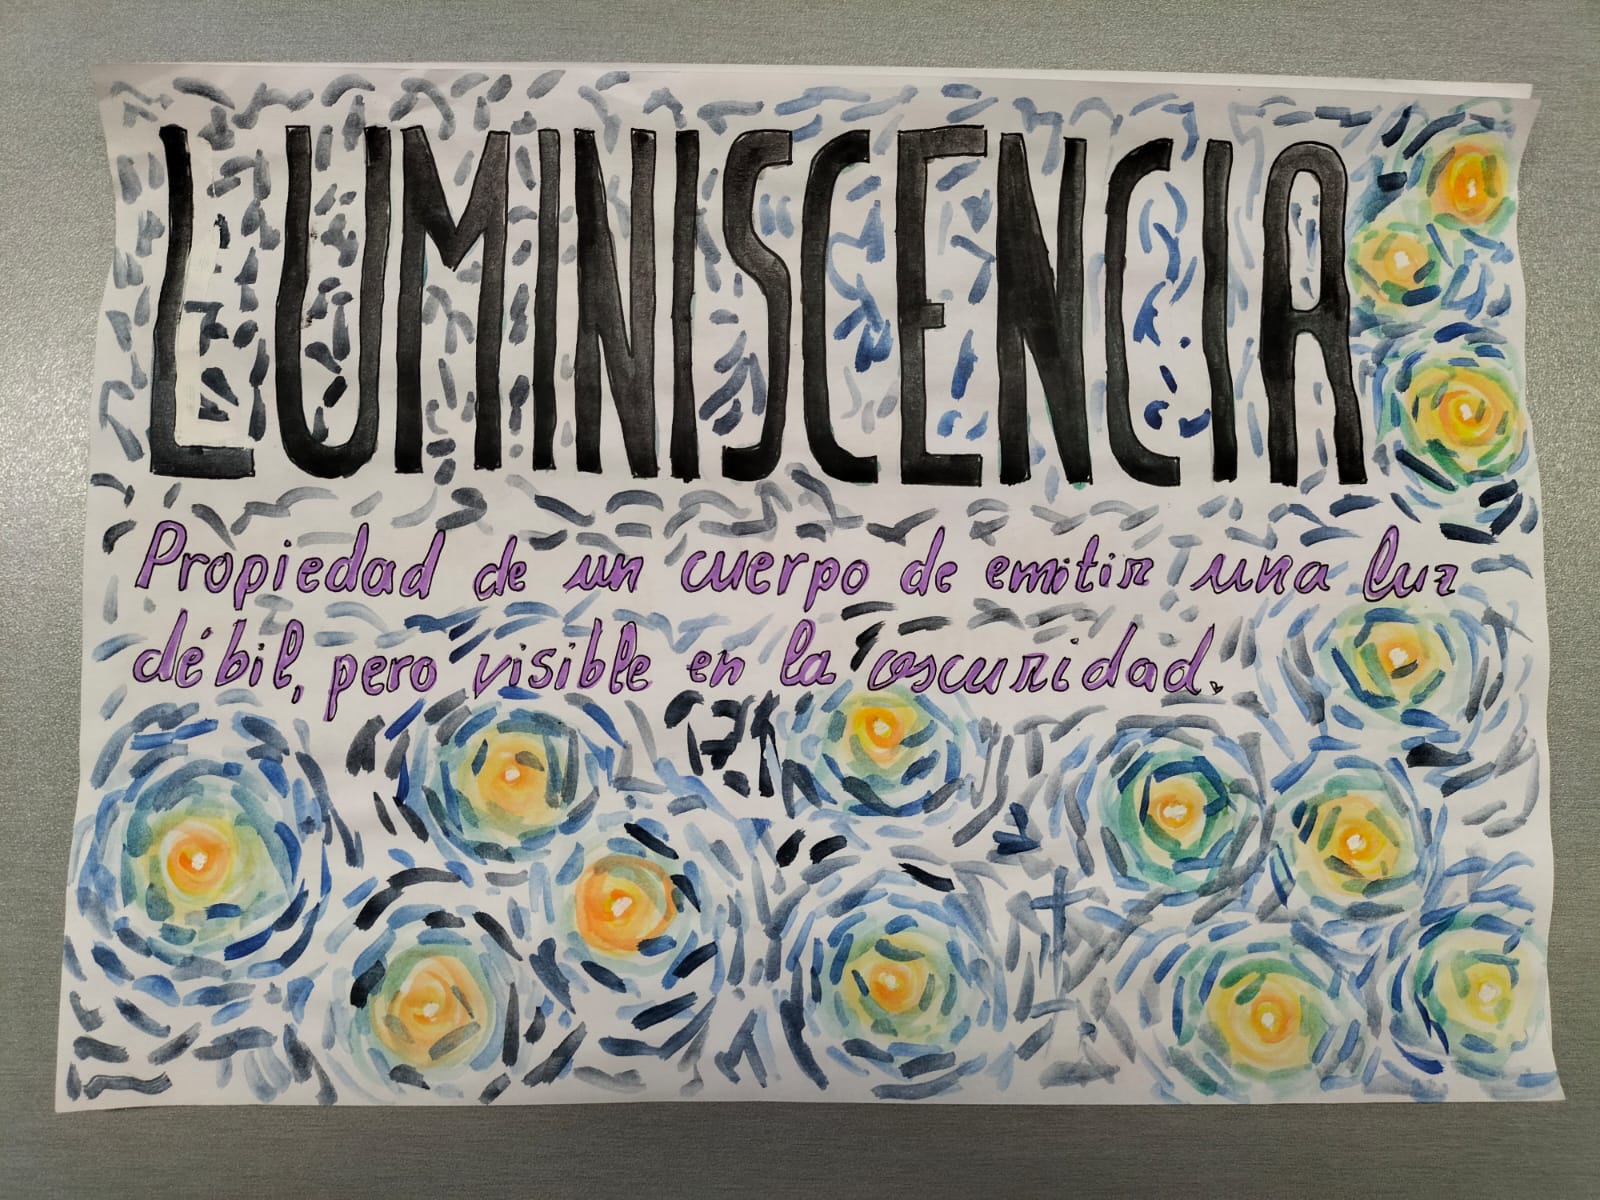 LUMINISCENCIA
Propiedad de un cuerpo de emitir una luz
débil, pero visible en la oscuridad.